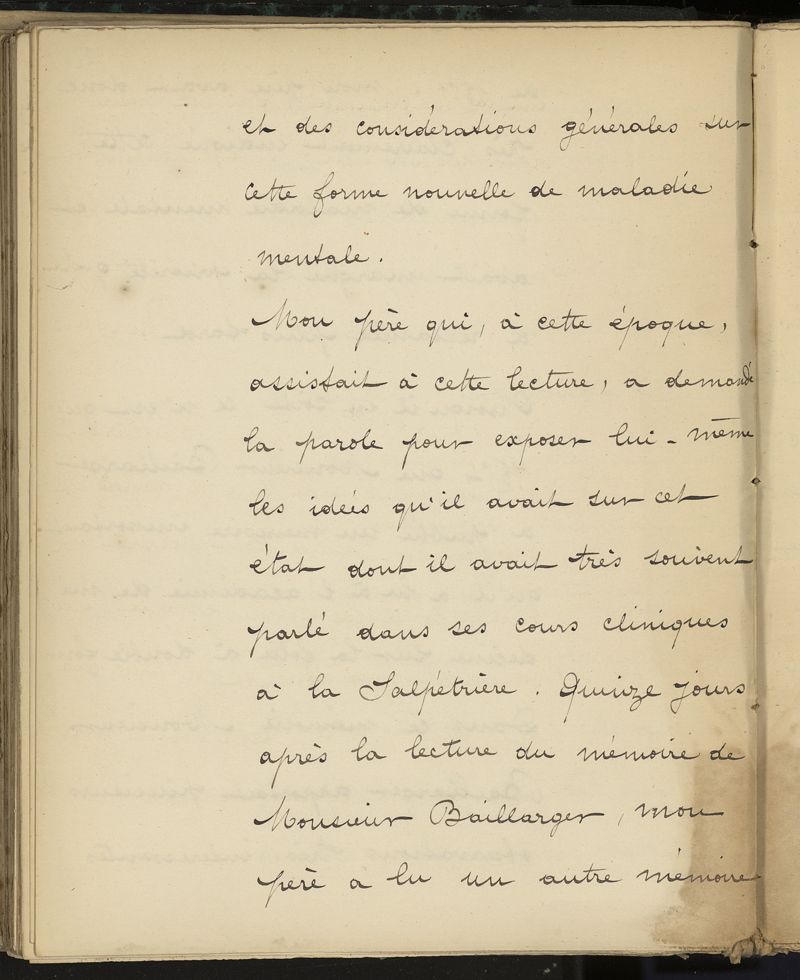 et des considérations générales sur
cette forme nouvelle de maladie
mentale.
Mon père qui, à cette époque,
assistait à cette lecture, a demandé
la parole pour exposer lui-même
les idées qu'il avait sur cet
état dont il avait très souvent
parlé dans ses cours cliniques
à la Salpétrière. Quinze jours
après la lecture du mémoire de
Monsieur Baillarger, mon
père a lu un autre mémoire